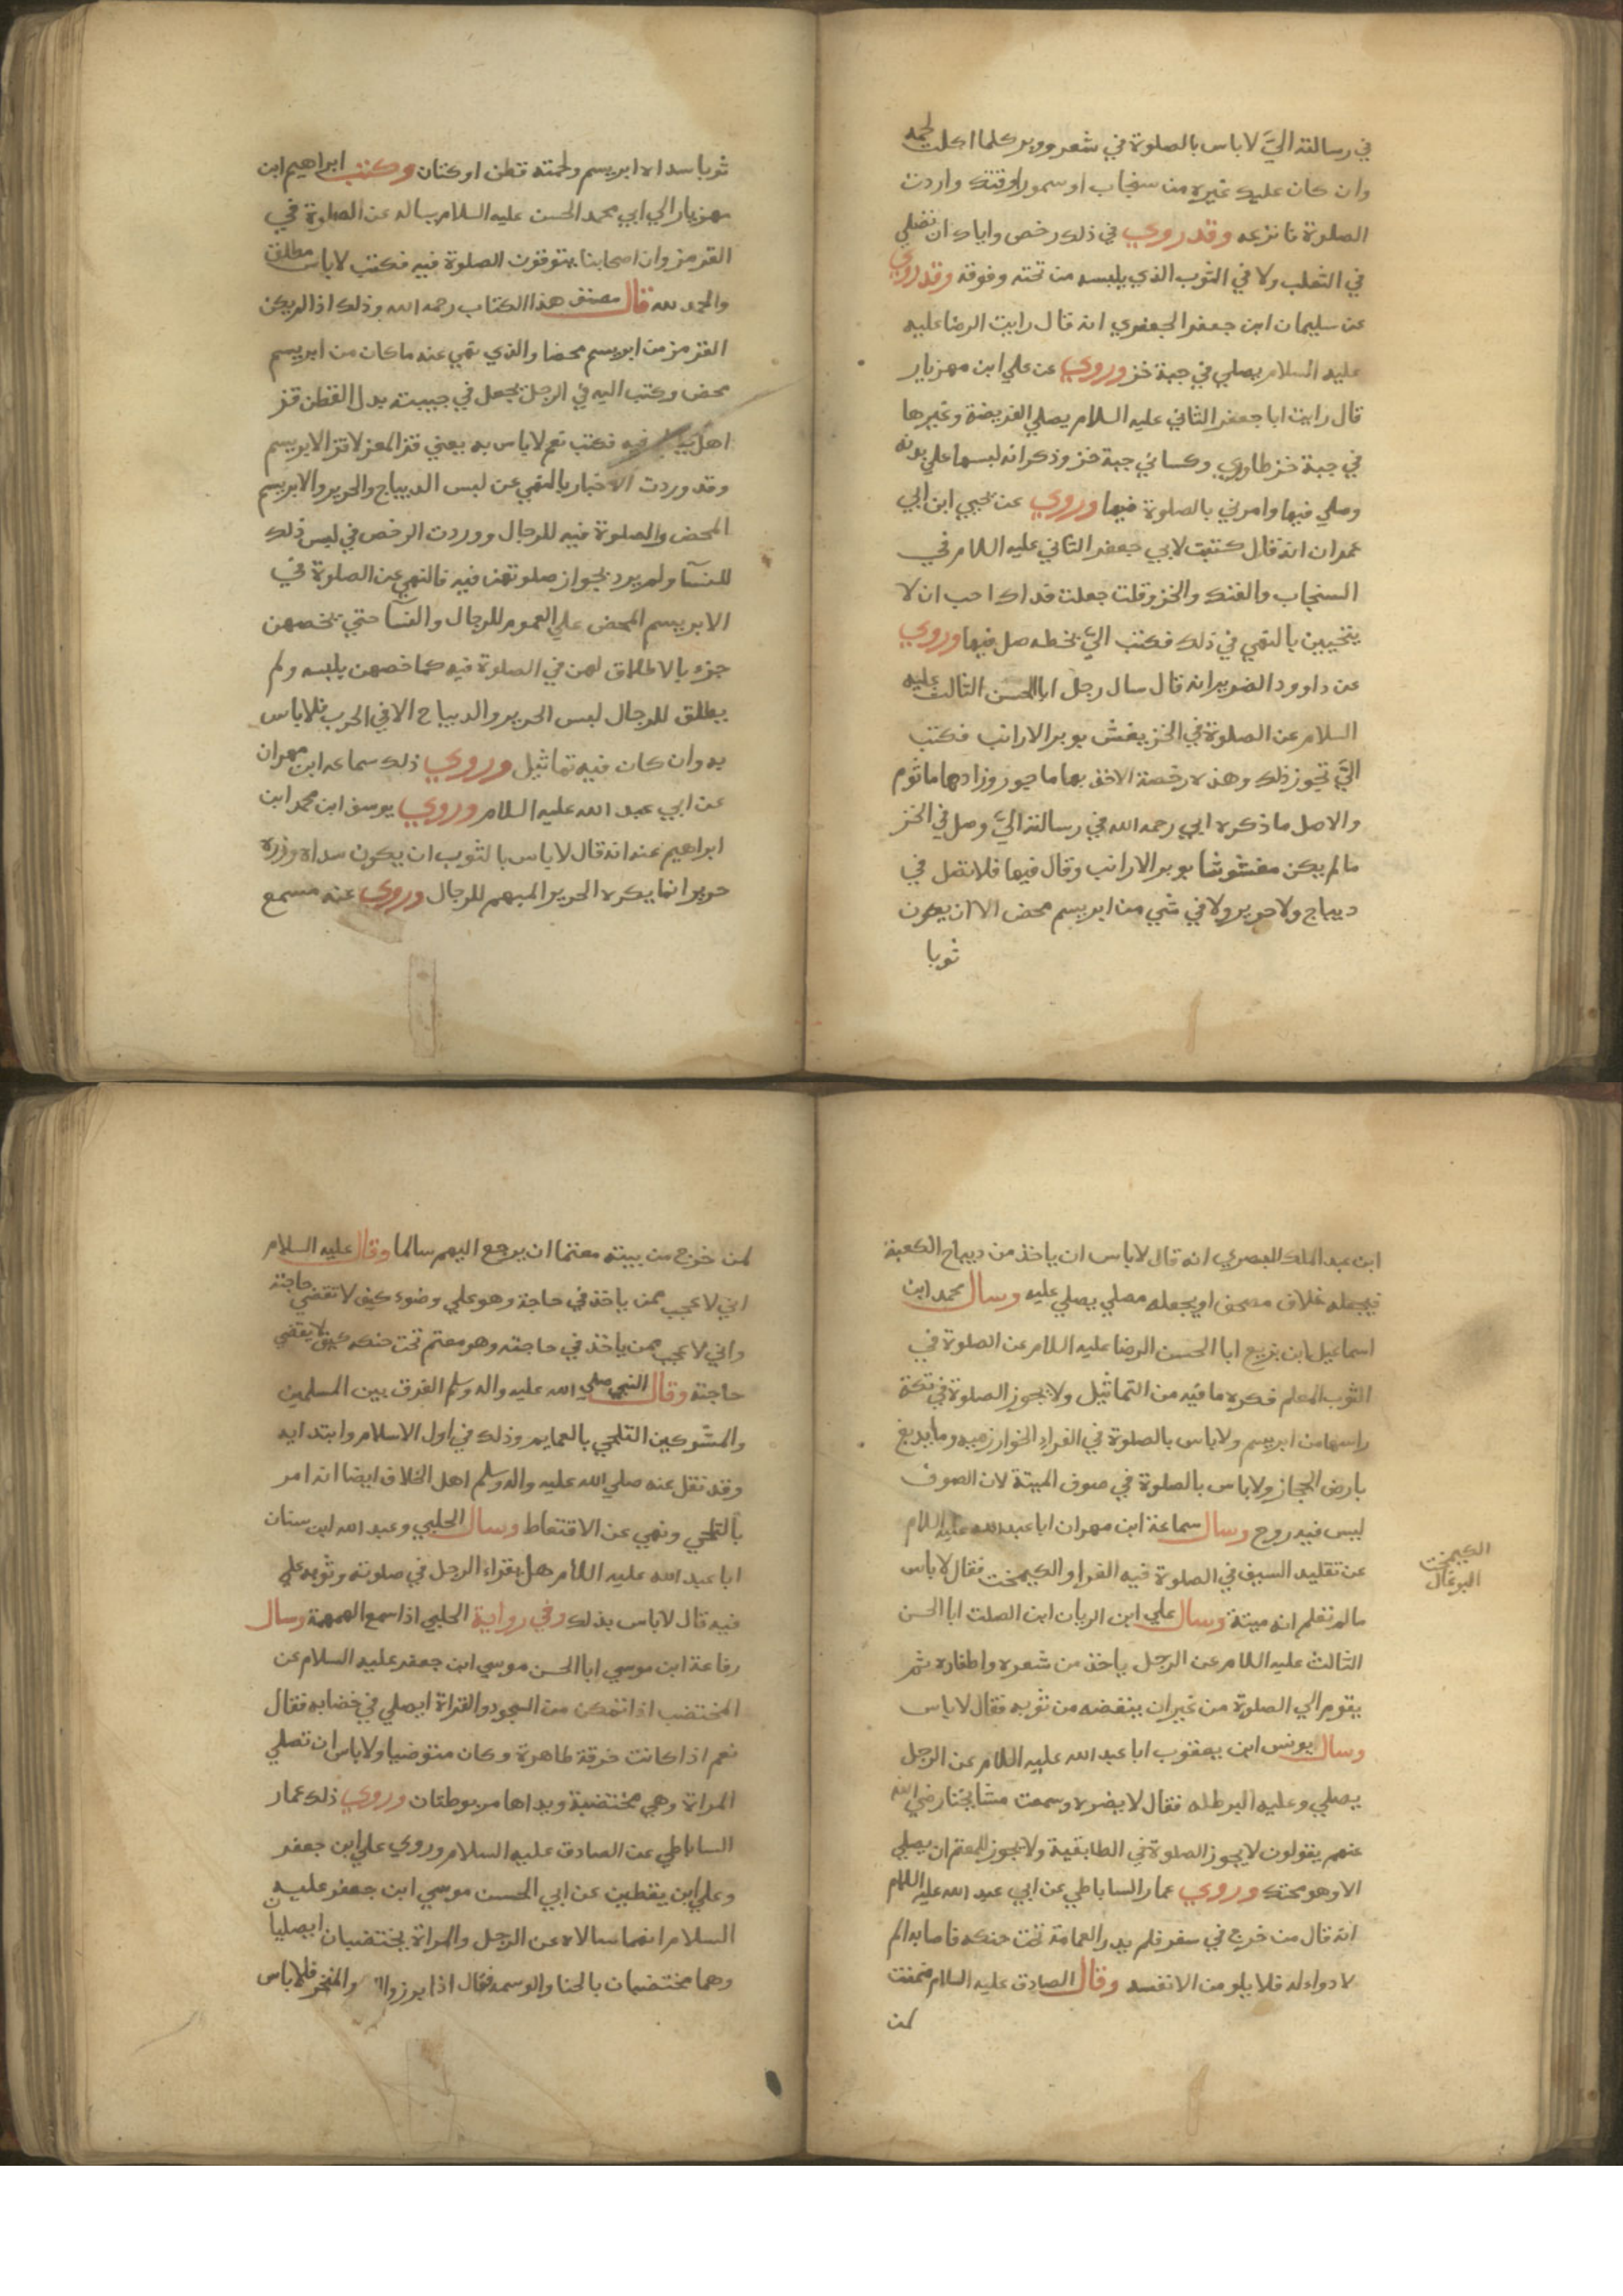 في رسالته اليّ لا باس بالصلوة في شعر ووبر كلما اكلت لحمه
وان كان عليك غيره من سنجاب او سمور او فنك واردت
الصلوة فانزعه وقد روي في ذلك رخص واياك ان تصلي
في الثعلب ولا في الثوب الذي يلبسه من تحته وفوقه وقد روي
عن سليمان ابن جعفر الجعفري انه قال رايت الرضا عليه
عليه السلام يصلي في جبة خز وروي عن علي ابن مهزيار
قال رايت ابا جعفر الثاني عليه السلام يصلي الفريضة وغيرها
في جبة خز طاروي وكساني جبة خز وذكر انه لبسها علي بدنه
وصلي فيها وامرني بالصلوة فيها وروي عن يحيي ابن ابي
عمران انه قال كتبت لابي جعفر الثاني عليه اللام في
السنجاب والفنك والخز وقلت جعلت فداك احب ان لا
يتحيبن بالتقي في ذلك فكتب اليّ بخطه صل فيها وروي
عن داوود الضرير انه قال سال رجل ابا الحسن الثالث عليه
السلام عن الصلوة في الخز يغش بوبر الارانب فكتب
اليّ تجوز ذلك وهذه رخصة الاخذ بها ماجور وزادها ماثوم
والاصل ما ذكره ابي رحمه الله في رسالته اليّ وصل في الخز
مالم يكن مغشوشا بوبر الارانب وقال فيها فلا تصل في
ديباج ولا حرير ولا في شي من ابريسم محض الا ان يكون
ثوبا
ثوبا سداه ابريسم ولحمته قطن او كتان وكتب ابراهيم ابن
مهزيار الي ابي محمد الحسن عليه السلام يساله عن الصلوة في
القرمز وان اصحابنا يتوقفون الصلوة فيه فكتب لا باس مطلق
والحمد لله قال مصنف هذا الكتاب رحمه الله وذلك اذا لم يكن
القرمز من ابريسم محضا والذي نهي عنه ما كان من ابريسم
محض وكتب اليه في الرجل يجعل في جببته بدل القطن قز
اهل يصلي فيه فكتب نعم لا باس به يعني قز المعز لا قز الابريسم
وقد وردت الاخبار بالنهي عن لبس الديباج والحرير والابريسم
المحض والصلوة فيه للرجال ووردت الرخص في لبس ذلك
للنسآ ولم يرد بجواز صلوتهن فيه فالنهي عن الصلوة في
الابريسم المحض علي العموم للرجال والنسآ حتي يخصهن
جزء بالاطلاق لهن في الصلوة فيه كما خصهن بلبسه ولم
يطلق للرجال لبس الحرير والديباج الا في الحرب فلا باس
به وان كان فيه تماثيل وروي ذلك سماعه ابن مهران
عن ابي عبد الله عليه السلام وروي يوسف ابن محمد ابن
ابراهيم عنه انه قال لا باس بالثوب ان يكون سداه وزره
حريرا انما يكره الحرير المبهم للرجال وروي عنه مسمع
ابن عبد الملك البصري انه قال لا باس ان ياخذ من ديباج الكعبة
فيجعله غلاف مصحف او يجعله مصلي يصلي عليه وسال محمد ابن
اسماعيل ابن بزيع ابا الحسن الرضا عليه اللام عن الصلوة في
الثوب المعلم فكره ما فيه من التماثيل ولا يجوز الصلوة في تكة
راسها من ابريسم ولا باس بالصلوة في الفراء الخوارزميه وما يدبغ
بارض الحجاز ولا باس بالصلوة في صوف الميتة لان الصوف
ليس فيه روح وسال سماعة ابن مهران ابا عبد الله عليه اللام
عن تقليد السيف في الصلوة فيه الفراء والكيمخت فقال لا باس
مالم تعلم انه ميتة وسال علي ابن الريان ابن الصلت ابا الحسن
الثالث عليه اللام عن الرجل ياخذ من شعره واظفاره ثم
يقوم الي الصلوة من غير ان ينفضه من ثوبه فقال لا باس
وسال يونس ابن يعقوب ابا عبد الله عليه اللام عن الرجل
يصلي وعليه البرطله فقال لا يضره وسمعت مشايخنا رضي الله
عنهم يقولون لا يجوز الصلوة في الطابقية ولا يجوز للمعتم ان يصلي
الا وهو محنك وروي عمار الساباطي عن ابي عبد الله عليه اللام
انه قال من خرج في سفر فلم يدر العمامة تحت حنكه فاصابه الم
لا دواء له فلا يلومن الا نفسه وقال الصادق عليه السلام ضمنت
لمن
الكيمخت
البوغال
لمن خرج من بيته معتما ان يرجع اليهم سالما وقال عليه السلام
اني لاعجب ممن ياخذ في حاجة وهو علي وضوء كيف لا تقضي حاجته
واني لاعجب ممن ياخذ في حاجته وهو معتم تحت حنكه كيف لا يقضي
حاجته وقال النبي صلي الله عليه واله وسلم الفرق بين المسلمين
والمشركين التلحي بالعمايم وذلك في اول الاسلام وابتدايه
وقد نقل عنه صلي الله عليه واله وسلم اهل الخلاف ايضا انه امر
بالتلحي ونهي عن الاقتعاط وسال الحلبي وعبد الله ابن سنان
ابا عبد الله عليه اللام هل يقراء الرجل في صلوته وثوبه علي
فيه قال لا باس بذلك وفي رواية الحلبي اذا سمع الهمهمة وسال
رفاعة ابن موسي ابا الحسن موسي ابن جعفر عليه السلام عن
المختضب اذا تمكن من السجود والقراة ايصلي في خضابه فقال
نعم اذا كانت خرقة طاهرة وكان متوضيا ولا باس ان تصلي
المراة وهي مختضبة ويداها مربوطتان وروي ذلك عمار
الساباطي عن الصادق عليه السلام وروي علي ابن جعفر
وعلي ابن يقطين عن ابي الحسن موسي ابن جعفر عليه
السلام انهما سالاه عن الرجل والمراة يختضبان ايصليان
وهما مختضبان بالحنا والوسمه فقال اذا برزوا والمنخر فلا باس